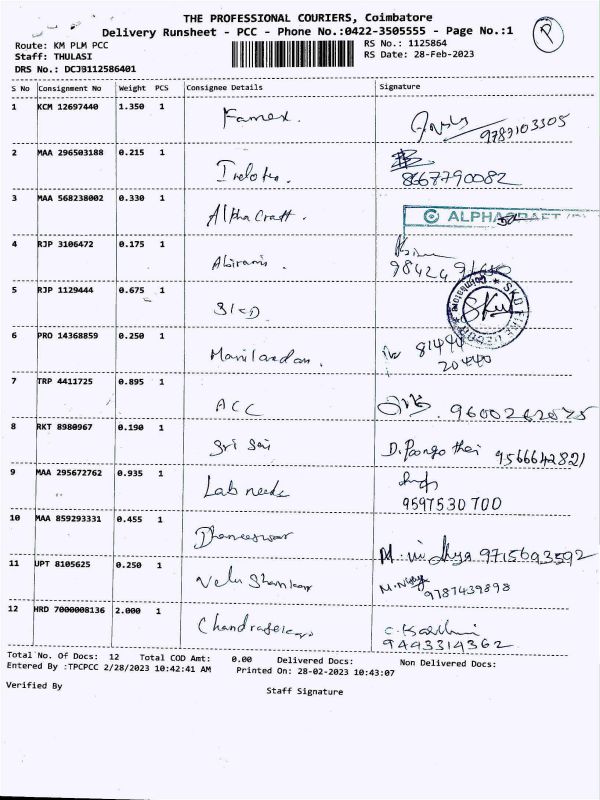 THE PROFESSIONAL COURIERS, Coimbatore
Delivery Runsheet - PCC - Phone No.:0422-3505555 - Page No.:1
Route: KM PLM PCC
RS No.: 1125864
Staff: THULASI
RS Date: 28-Feb-2023
DRS No.: DCJB112586401
S No Consignment No Weight PCS Consignee Details Signature
1 KCM 12697440 1.350 1
Famex.
9789103305
2 MAA 296503188 0.215 1
8667790082
3 MAA 568238002 0.330 1
AlphaCraft.
ALPHACRAFT
4 RJP 3106472 0.175 1
Abirami.
5 RJP 1129444 0.675 1
SKD
6 PRO 14368859 0.250 1
Manikandan.
81494
20440
7 TRP 4411725 0.895 1
ACC
8 RKT 8980967 0.190 1
Sri Sai
D. Poongothai 9566642821
9 MAA 295672762 0.935 1
Lab needs
9597530700
10 MAA 859293331 0.455 1
Dhaneeswar
M. nidhya 9715693592
11 UPT 8105625 0.250 1
Velu Shankar
9787439898
12 HRD 7000008136 2.000 1
Chandrasekar
9443314362
Total No. Of Docs: 12 Total COD Amt: 0.00 Delivered Docs: Non Delivered Docs:
Entered By :TPCPCC 2/28/2023 10:42:41 AM Printed On: 28-02-2023 10:43:07
Verified By
Staff Signature